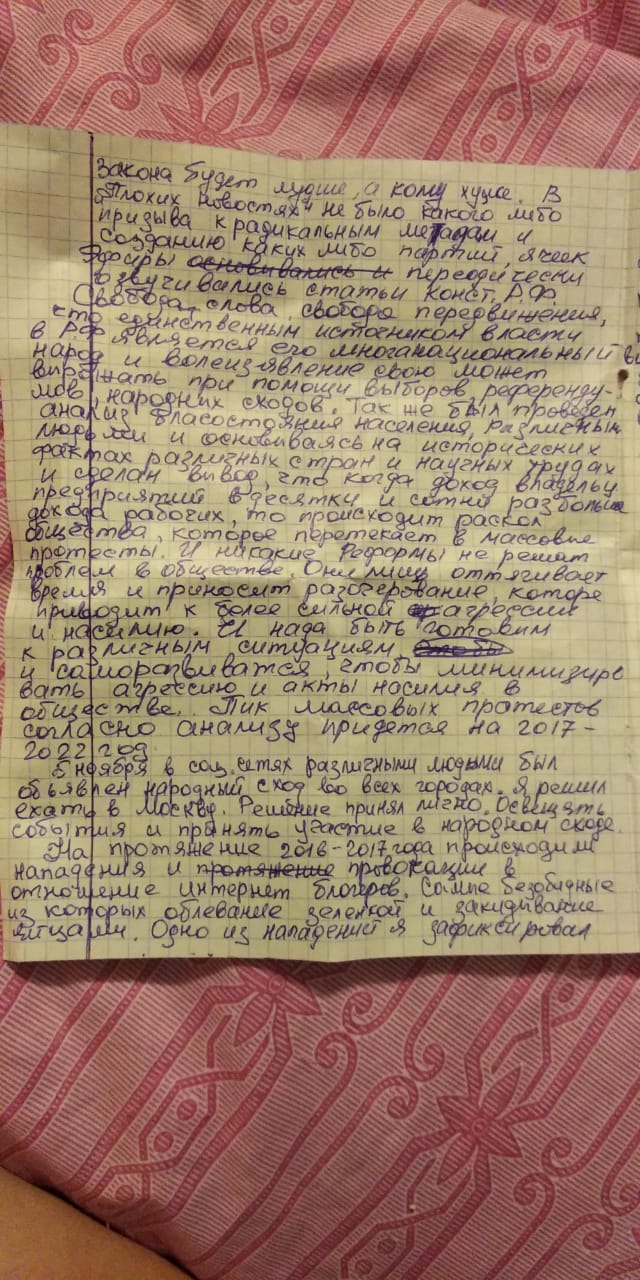 Закона будет лучше, а кому хуже. В
"Плохих Новостях" не было какого либо
призыва к радикальным методам и
созданию каких либо партий, ячеек
Эфиры основывались и переодически
озвучивались статьи Конст. Р.Ф.
Свобода слова, свобода передвижения,
что единственным источником власти
в Р.Ф является его многанациональный
народ и волеизявление свою может
выражать при помощи выборов, референду-
мов, народных сходов. Так же был проведен
анализ благосостояния населения, различными
людьми и основываясь на исторических
фактах различных стран и научных трудах
и сделан вывод, что когда доход владельц
предприятий в десятки и сотни раз больше
дохода рабочих, то происходит раскол
общества, которое перетекает в массовые
протесты. И никакие Реформы не решат
проблем в обществе. Они лиш оттягивает
время и приносит разочерование, которе
приводит к более сильной агрессии
и насилию. И нада быть готовим
к различным ситуациям
и саморазвиватся, чтобы минимизиро
вать агрессию и акты насилия в
обществе. Пик массовых пратестов
согласно анализу придется на 2017-
2022 год.
5 ноября в соц. сетях различными людьми был
объявлен народный сход во всех городах. Я решил
ехать в Москву. Решение принял лично. Освещать
события и принять участие в народном сходе.
На протяжение 2016-2017 года происходили
нападения и протяжение провокации в
отношение интернет блогеров. Самые безобидные
из которых облевание зеленкой и закидывание
яйцами. Одно из нападений я зафиксировал